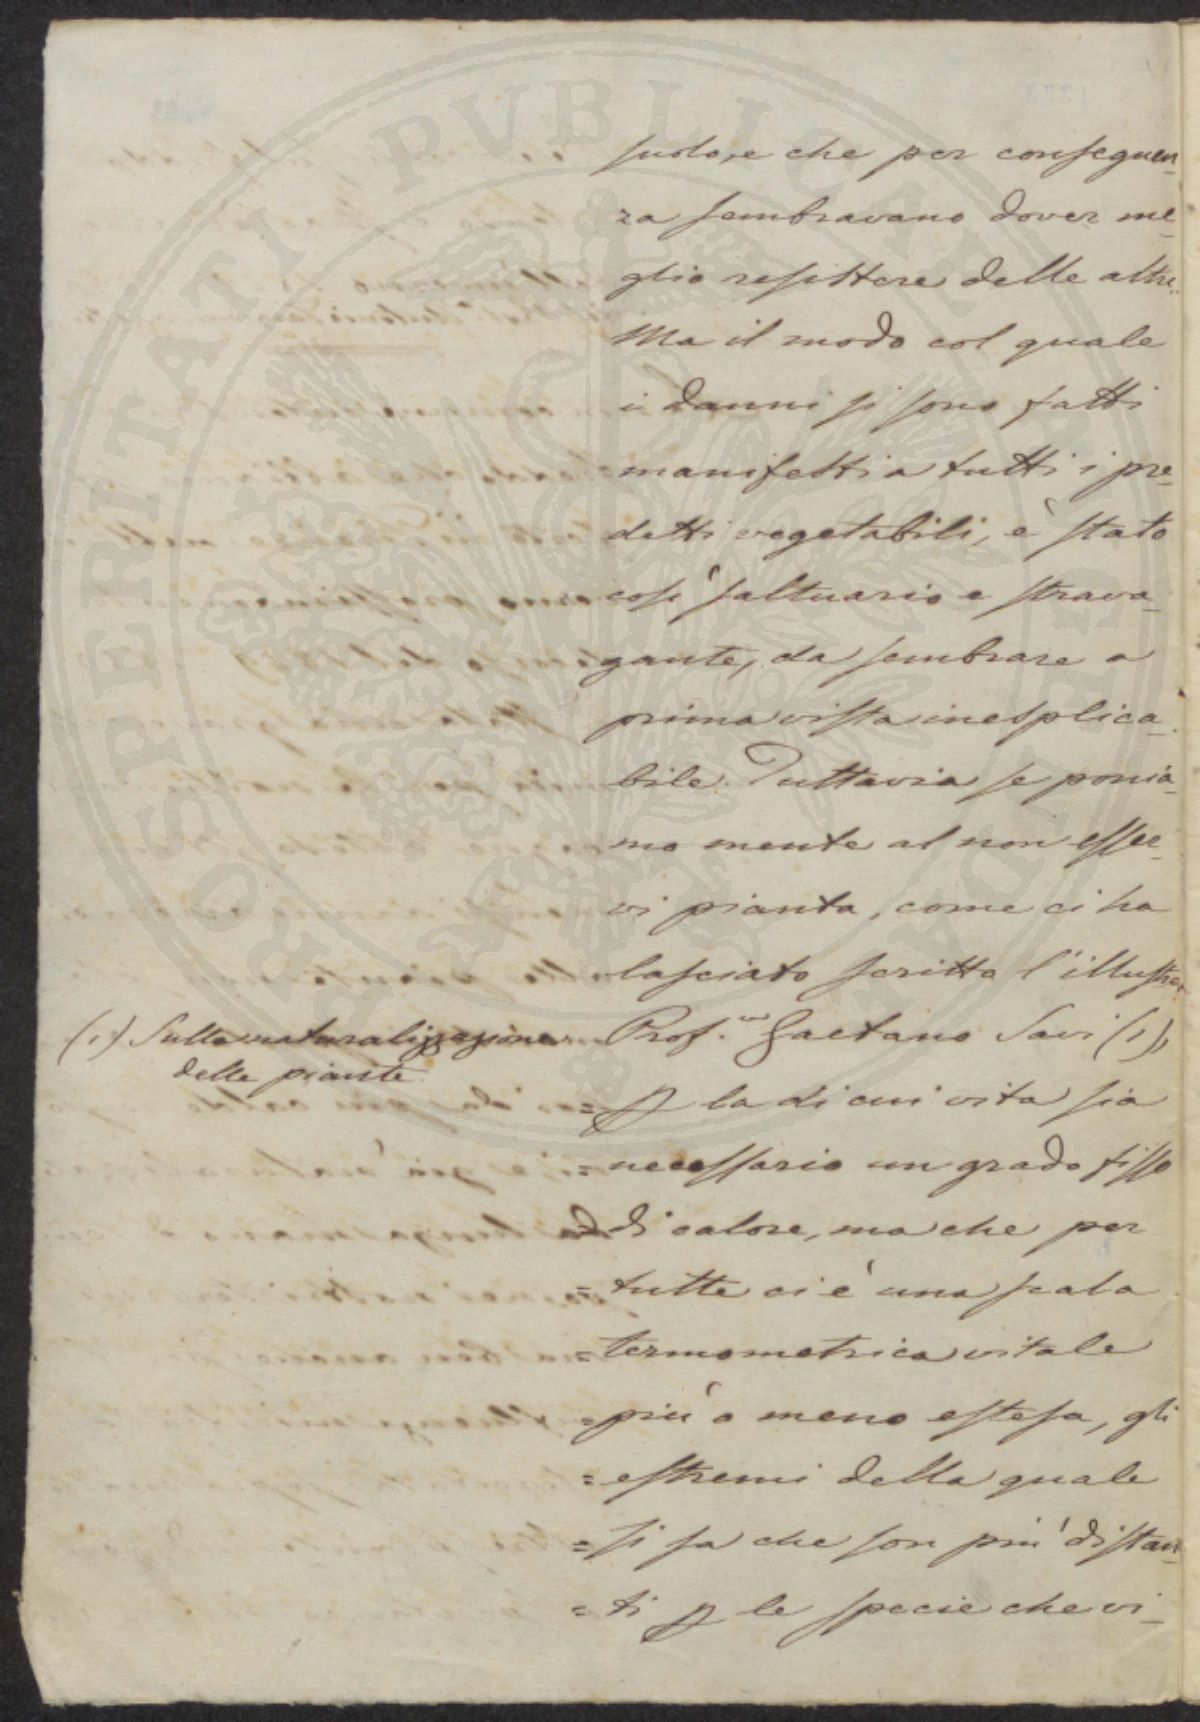 suolo, e che per conseguen-
za sembravano dover me-
glio resistere delle altre.
Ma il modo col quale
i danni si sono fatti
manifesti a tutti i pre-
detti vegetabili, è stato
così saltuario e strava-
gante, da sembrare a
prima vista inesplica-
bile. Tuttavia se ponia-
mo mente al non esser-
vi pianta, come ci ha
lasciato scritto l'illustre
Prof.re Gaetano Savi (1),
= p la di cui vita sia
= necessario un grado fisso
= di calore, ma che per
= tutte ci è una scala
= termometrica vitale
= più o meno estesa, gli
= estremi della quale
= si sa che son più distan-
= ti p le specie che vi-
(1) Sulla naturalizzazione
delle piante
PROSPERITATI PUBLICAE AUGENDAE